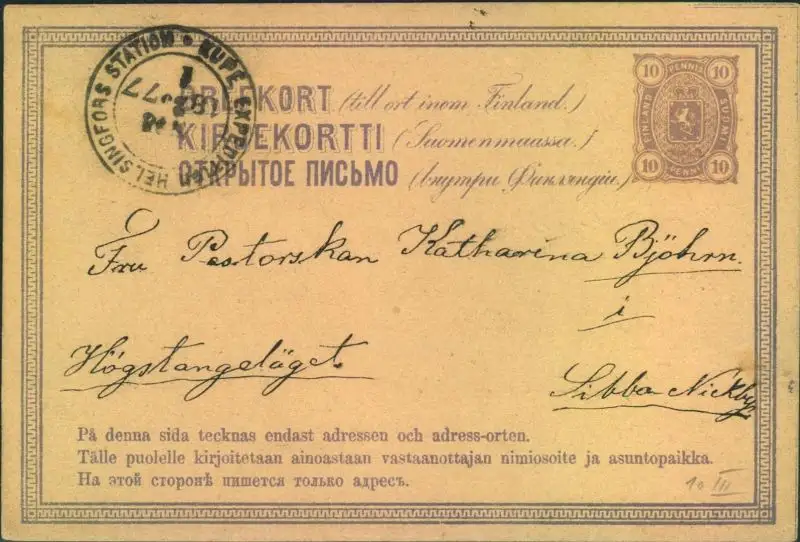 HELSINGFORS STATION • KUPE EXPEDITION
1
18 77
BREFKORT (till ort inom Finland.)
KIRJEKORTTI (Suomenmaassa.)
ОТКРЫТОЕ ПИСЬМО (внутри Финляндіи.)
10 PENNIÄ 10
FINLAND SUOMI
10 PENNIÄ 10
Fru Pastorskan Katharina Björhn.
i
Högstangeläget.
Sibbo Nickby
På denna sida tecknas endast adressen och adress-orten.
Tälle puolelle kirjoitetaan ainoastaan vastaanottajan nimiosoite ja asuntopaikka.
На этой сторонѣ пишется только адресъ.
10 III